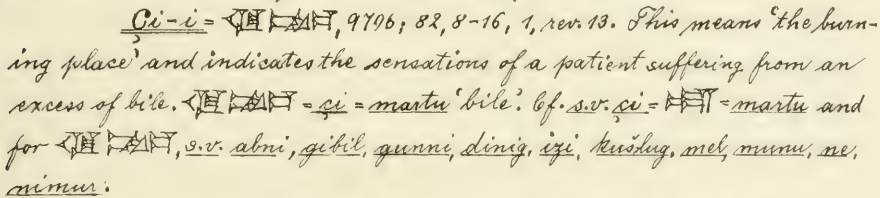 Çi-i = , 9706; 82, 8-16, 1, rev. 13. This means 'the burn-
ing place' and indicates the sensations of a patient suffering from an
excess of bile. = çi = martu 'bile'. Cf. s.v. çi = = martu and
for , s.v. abni, gibil, gunni, dinig, izi, kušlug, mel, munu, ne,
nimur.